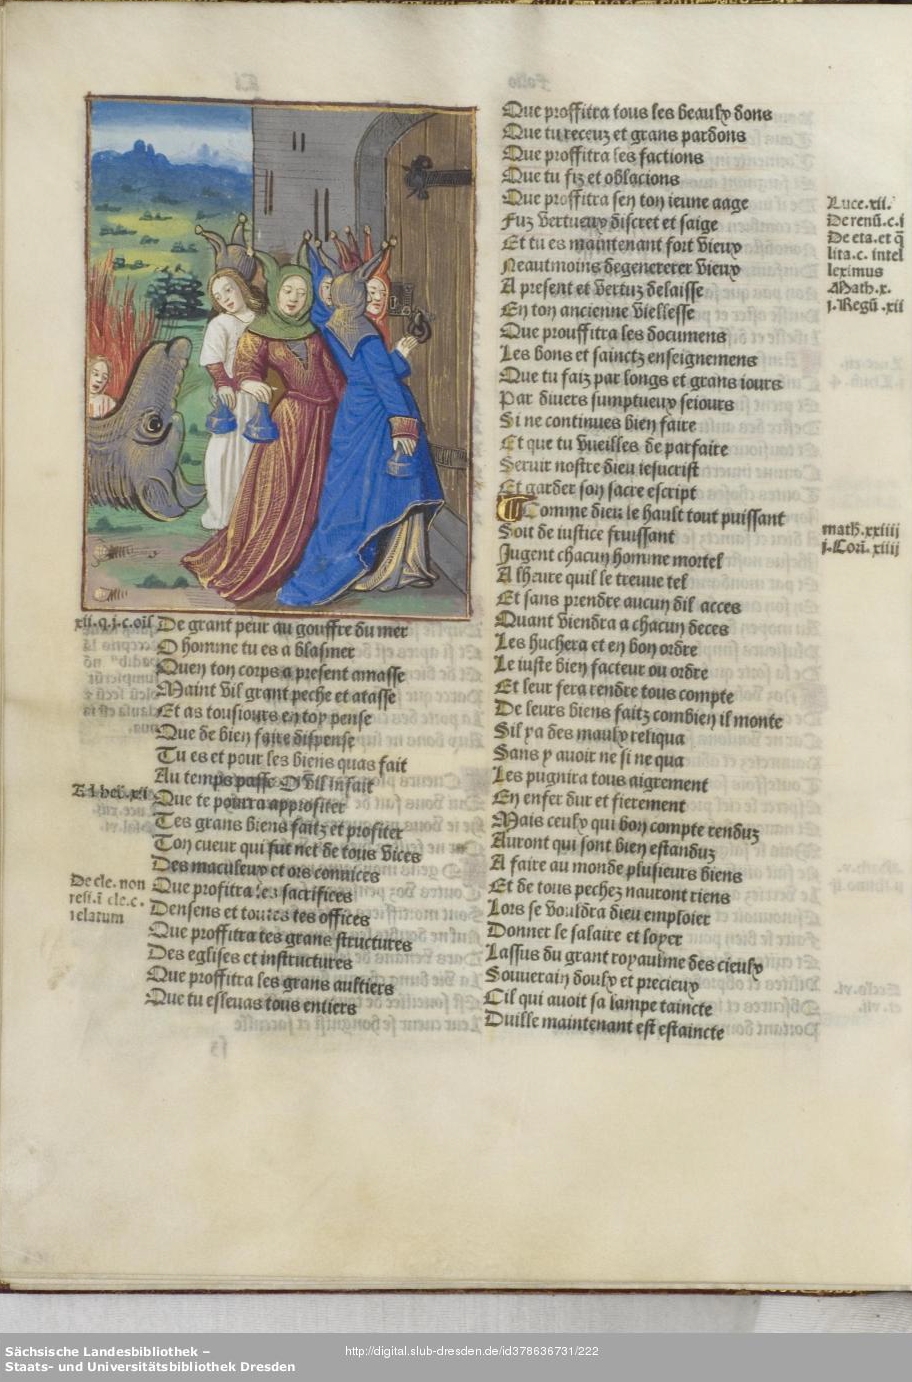 xii.q.i.c.oĩs
De grant peur au gouffre du mer
O homme tu es a blasmer
Quen ton corps a present amasse
Maint vil grant peche et atasse
Et as tousiours en toy pense
Que de bien faire dispense
Tu es et pour les biens quas fait
Au temps passe O vil infait
Que te pourra approfiter
Tes grans biens faitz et profiter
Ton cueur qui fut net de tous vices
Des maculeux et ors connices
Que profitra les sacrifices
Densens et toutes tes offices
Que proffitra tes grans structures
Des eglises et instructures
Que proffitra les grans aultiers
Que tu esleuas tous entiers
De cle. non
resi. ĩ cle. c.
relatum
Que proffitra tous les beaulx dons
Que tu receuz et grans pardons
Que proffitra les factions
Que tu fiz et oblacions
Que proffitra sen ton ieune aage
Fuz vertueux discret et saige
Et tu es maintenant fort vieux
Neautmoins degenererer vieux
A present et vertuz delaisse
En ton ancienne viellesse
Que prouffitra les documens
Les bons et sainctz enseignemens
Que tu faiz par longs et grans iours
Par diuers sumptueux seiours
Si ne continues bien faire
Et que tu vueilles de parfaire
Seruir nostre dieu iesucrist
Et garder son sacre escript
Comme dieu le hault tout puissant
Soit de iustice fruissant
Jugent chacun homme mortel
A lheure quil le treuue tel
Et sans prendre aucun dil acces
Quant viendra a chacun deces
Les huchera et en bon ordre
Le iuste bien facteur ou ordre
Et leur fera rendre tous compte
De leurs biens faitz combien il monte
Sil ya des maulx reliqua
Sans y auoir ne si ne qua
Les pugnira tous aigrement
En enfer dur et fierement
Mais ceulx qui bon compte renduz
Auront qui sont bien estanduz
A faire au monde plusieurs biens
Et de tous pechez nauront riens
Lors se vouldra dieu emploier
Donner le salaire et loyer
Lassus du grant royaulme des cieulx
Souuerain doulx et precieux
Cil qui auoit sa lampe taincte
Duille maintenant est estaincte
Luce.xii.
De renũ.c.i
De eta.et q̃
lita.c. intel
leximus
Math.x.
i.Regũ.xii
math.xxiiii
i.Corĩ.xiiii
Sächsische Landesbibliothek –
Staats- und Universitätsbibliothek Dresden
http://digital.slub-dresden.de/id378636731/222